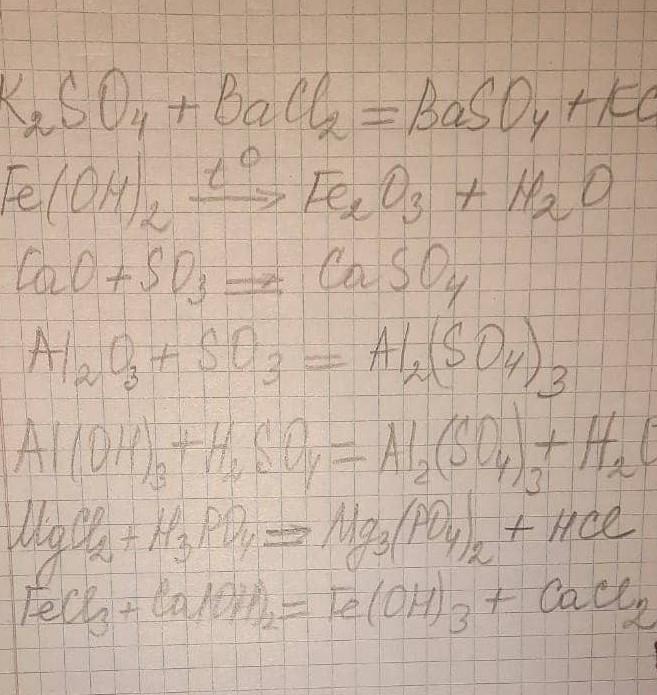 K₂SO₄ + BaCl₂ = BaSO₄ + KC
Fe(OH)₂ t° → Fe₂O₃ + H₂O
CaO + SO₃ = CaSO₄
Al₂O₃ + SO₃ = Al₂(SO₄)₃
Al(OH)₃ + H₂SO₄ = Al₂(SO₄)₃ + H₂O
MgCl₂ + H₃PO₄ = Mg₃(PO₄)₂ + HCl
FeCl₃ + Ca(OH)₂ = Fe(OH)₃ + CaCl₂